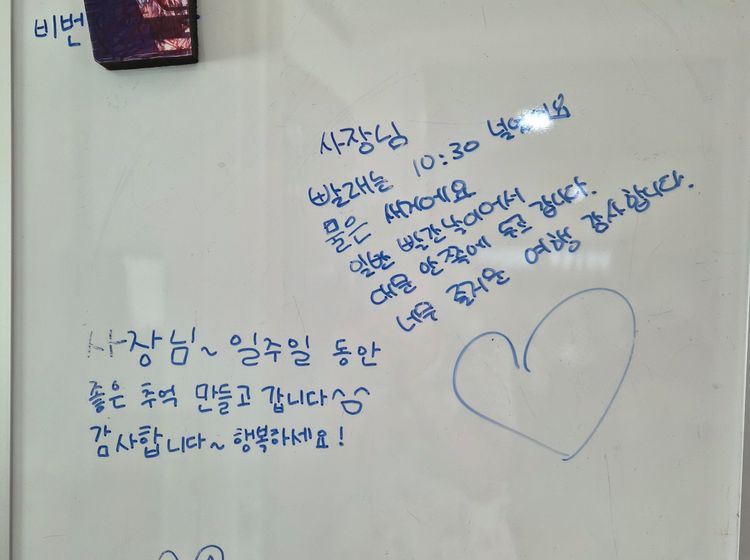 비번
사장님
빨래는 10:30 널었어요
물은 새거에요
일반 빨간냥이에서
대문 안쪽에 두고 갑니다.
너무 즐거운 여행 감사합니다.
사장님~ 일주일 동안
좋은 추억 만들고 갑니다^^
감사합니다~ 행복하세요!